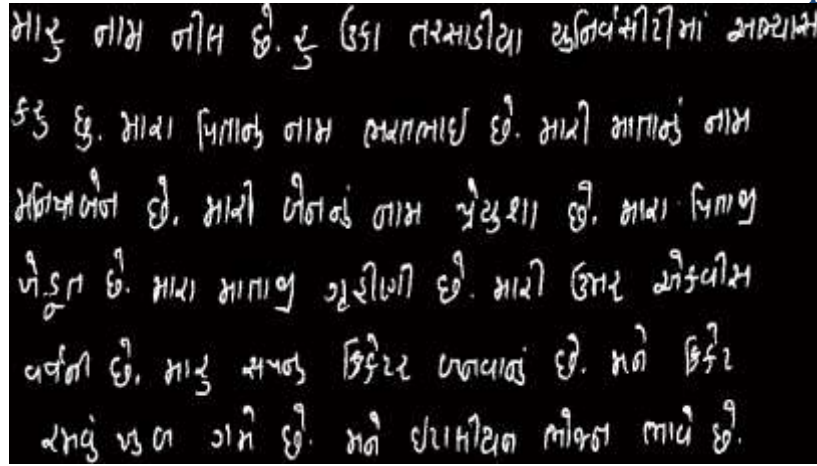 મારુ નામ નીલ છે. હુ ઉકા તરસાડીયા યુનિવંર્સીટીમાં અભ્યાસ
કરુ છુ. મારા પિતાનુ નામ ભરતભાઇ છે. મારી માતાનું નામ
છે. મારી બેનનું નામ પ્રેયુશા છે. મારા પિતાજી
ખેડૂત છે. મારા માતાજી ગૃહીણી છે. મારી ઉમર એકવીસ
વર્ષની છે. મારુ સપનુ ક્રિકેટર બનવાનું છે. મને ક્રિકેટ
રમવું ખુબ ગમે છે. મને ઇટાલીયન ભોજન ભાવે છે.